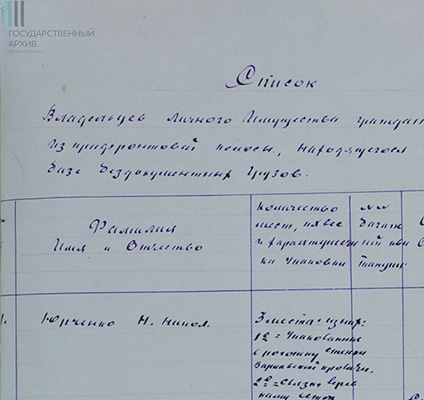 ГОСУДАРСТВЕННЫЙ
АРХИВ
Список
Владельцев личного Имущества граждан
из прифронтовой полосы, находящегося
базе бездокументных Грузов.
Фамилия
Имя и Отчество
Количество
мест, их вес
и характеристи
ка Упаковки
NN
багаж
ной кви
танции
1. Юрченко Н. Никол.
3 места – шир:
1е = Упакованные
в рогожу стенки
кровати.
2е = связки